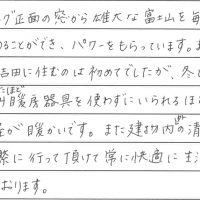 グ正面の窓から雄大な富士山を毎
ることができ、パワーをもらっています。
吉田に住むのは初めてでしたが、冬
り暖房器具を使わずにいられるほ
屋が暖かいです。また建物内の清
繁に行って頂けて常に快適に生活
おります。